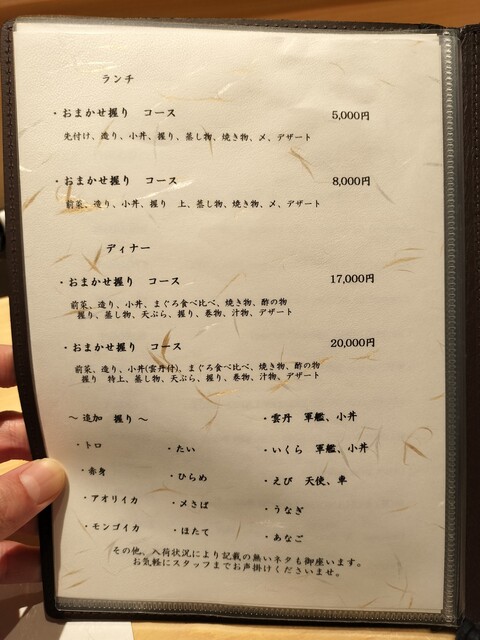 ランチ
・おまかせ握り コース 5,000円
先付け、造り、小丼、握り、蒸し物、焼き物、〆、デザート
・おまかせ握り コース 8,000円
前菜、造り、小丼、握り 上、蒸し物、焼き物、〆、デザート
ディナー
・おまかせ握り コース 17,000円
前菜、造り、小丼、まぐろ食べ比べ、焼き物、酢の物
握り、蒸し物、天ぷら、握り、巻物、汁物、デザート
・おまかせ握り コース 20,000円
前菜、造り、小丼(雲丹付)、まぐろ食べ比べ、焼き物、酢の物
握り 特上、蒸し物、天ぷら、握り、巻物、汁物、デザート
～ 追加 握り ～
・トロ
・赤身
・アオリイカ
・モンゴイカ
・たい
・ひらめ
・〆さば
・ほたて
・雲丹 軍艦、小丼
・いくら 軍艦、小丼
・えび 天使、車
・うなぎ
・あなご
その他、入荷状況により記載の無いネタも御座います。
お気軽にスタッフまでお声掛けくださいませ。